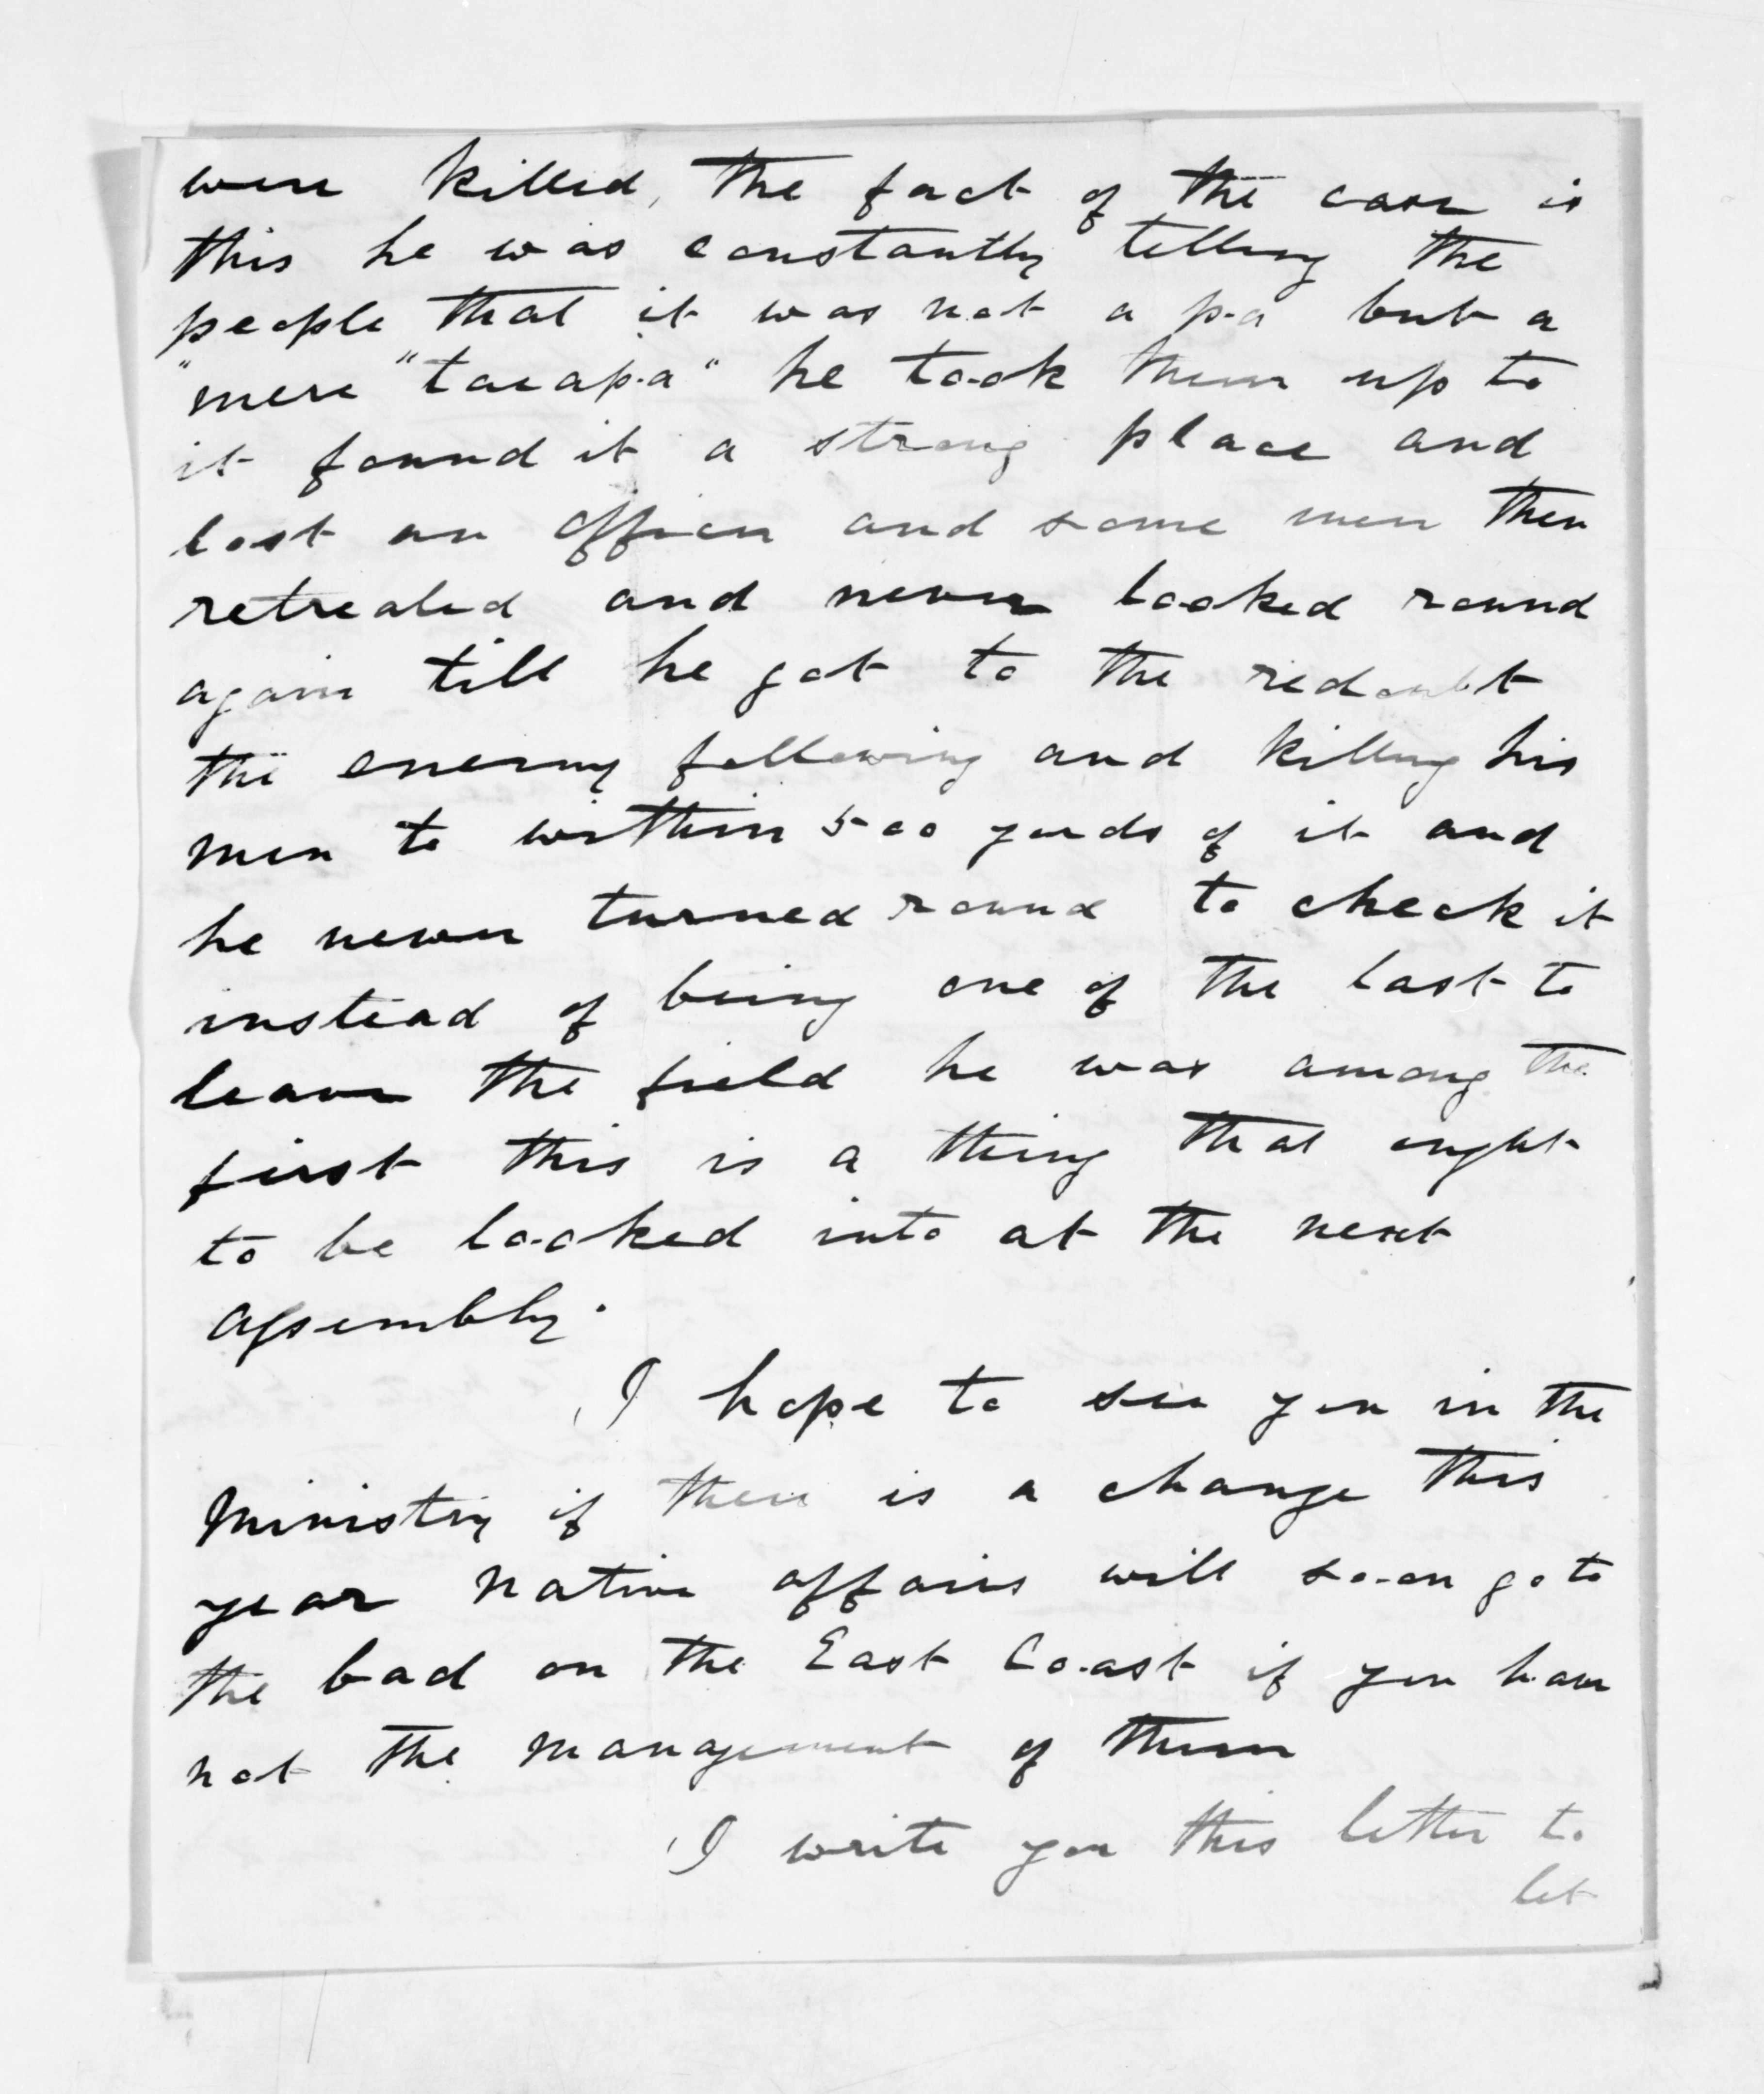 were killed, the fact of the case is
this he was constantly telling the
people that it was not a pa but a
"mere "taeapa" he took them up to
it found it a strong place and
lost an officer and some men then
retreated and never looked round
again till he got to the redoubt
the enemy following and killing his
men to within 500 yards of it and
he never turned round to check it
instead of being one of the last to
leave the field he was among the
first this is a thing that ought
to be looked into at the next
assembly.
I hope to see you in the
Ministry if there is a change this
year native affairs will soon go to
the bad on the East Coast if you have
not the management of them
I write you this letter to
let